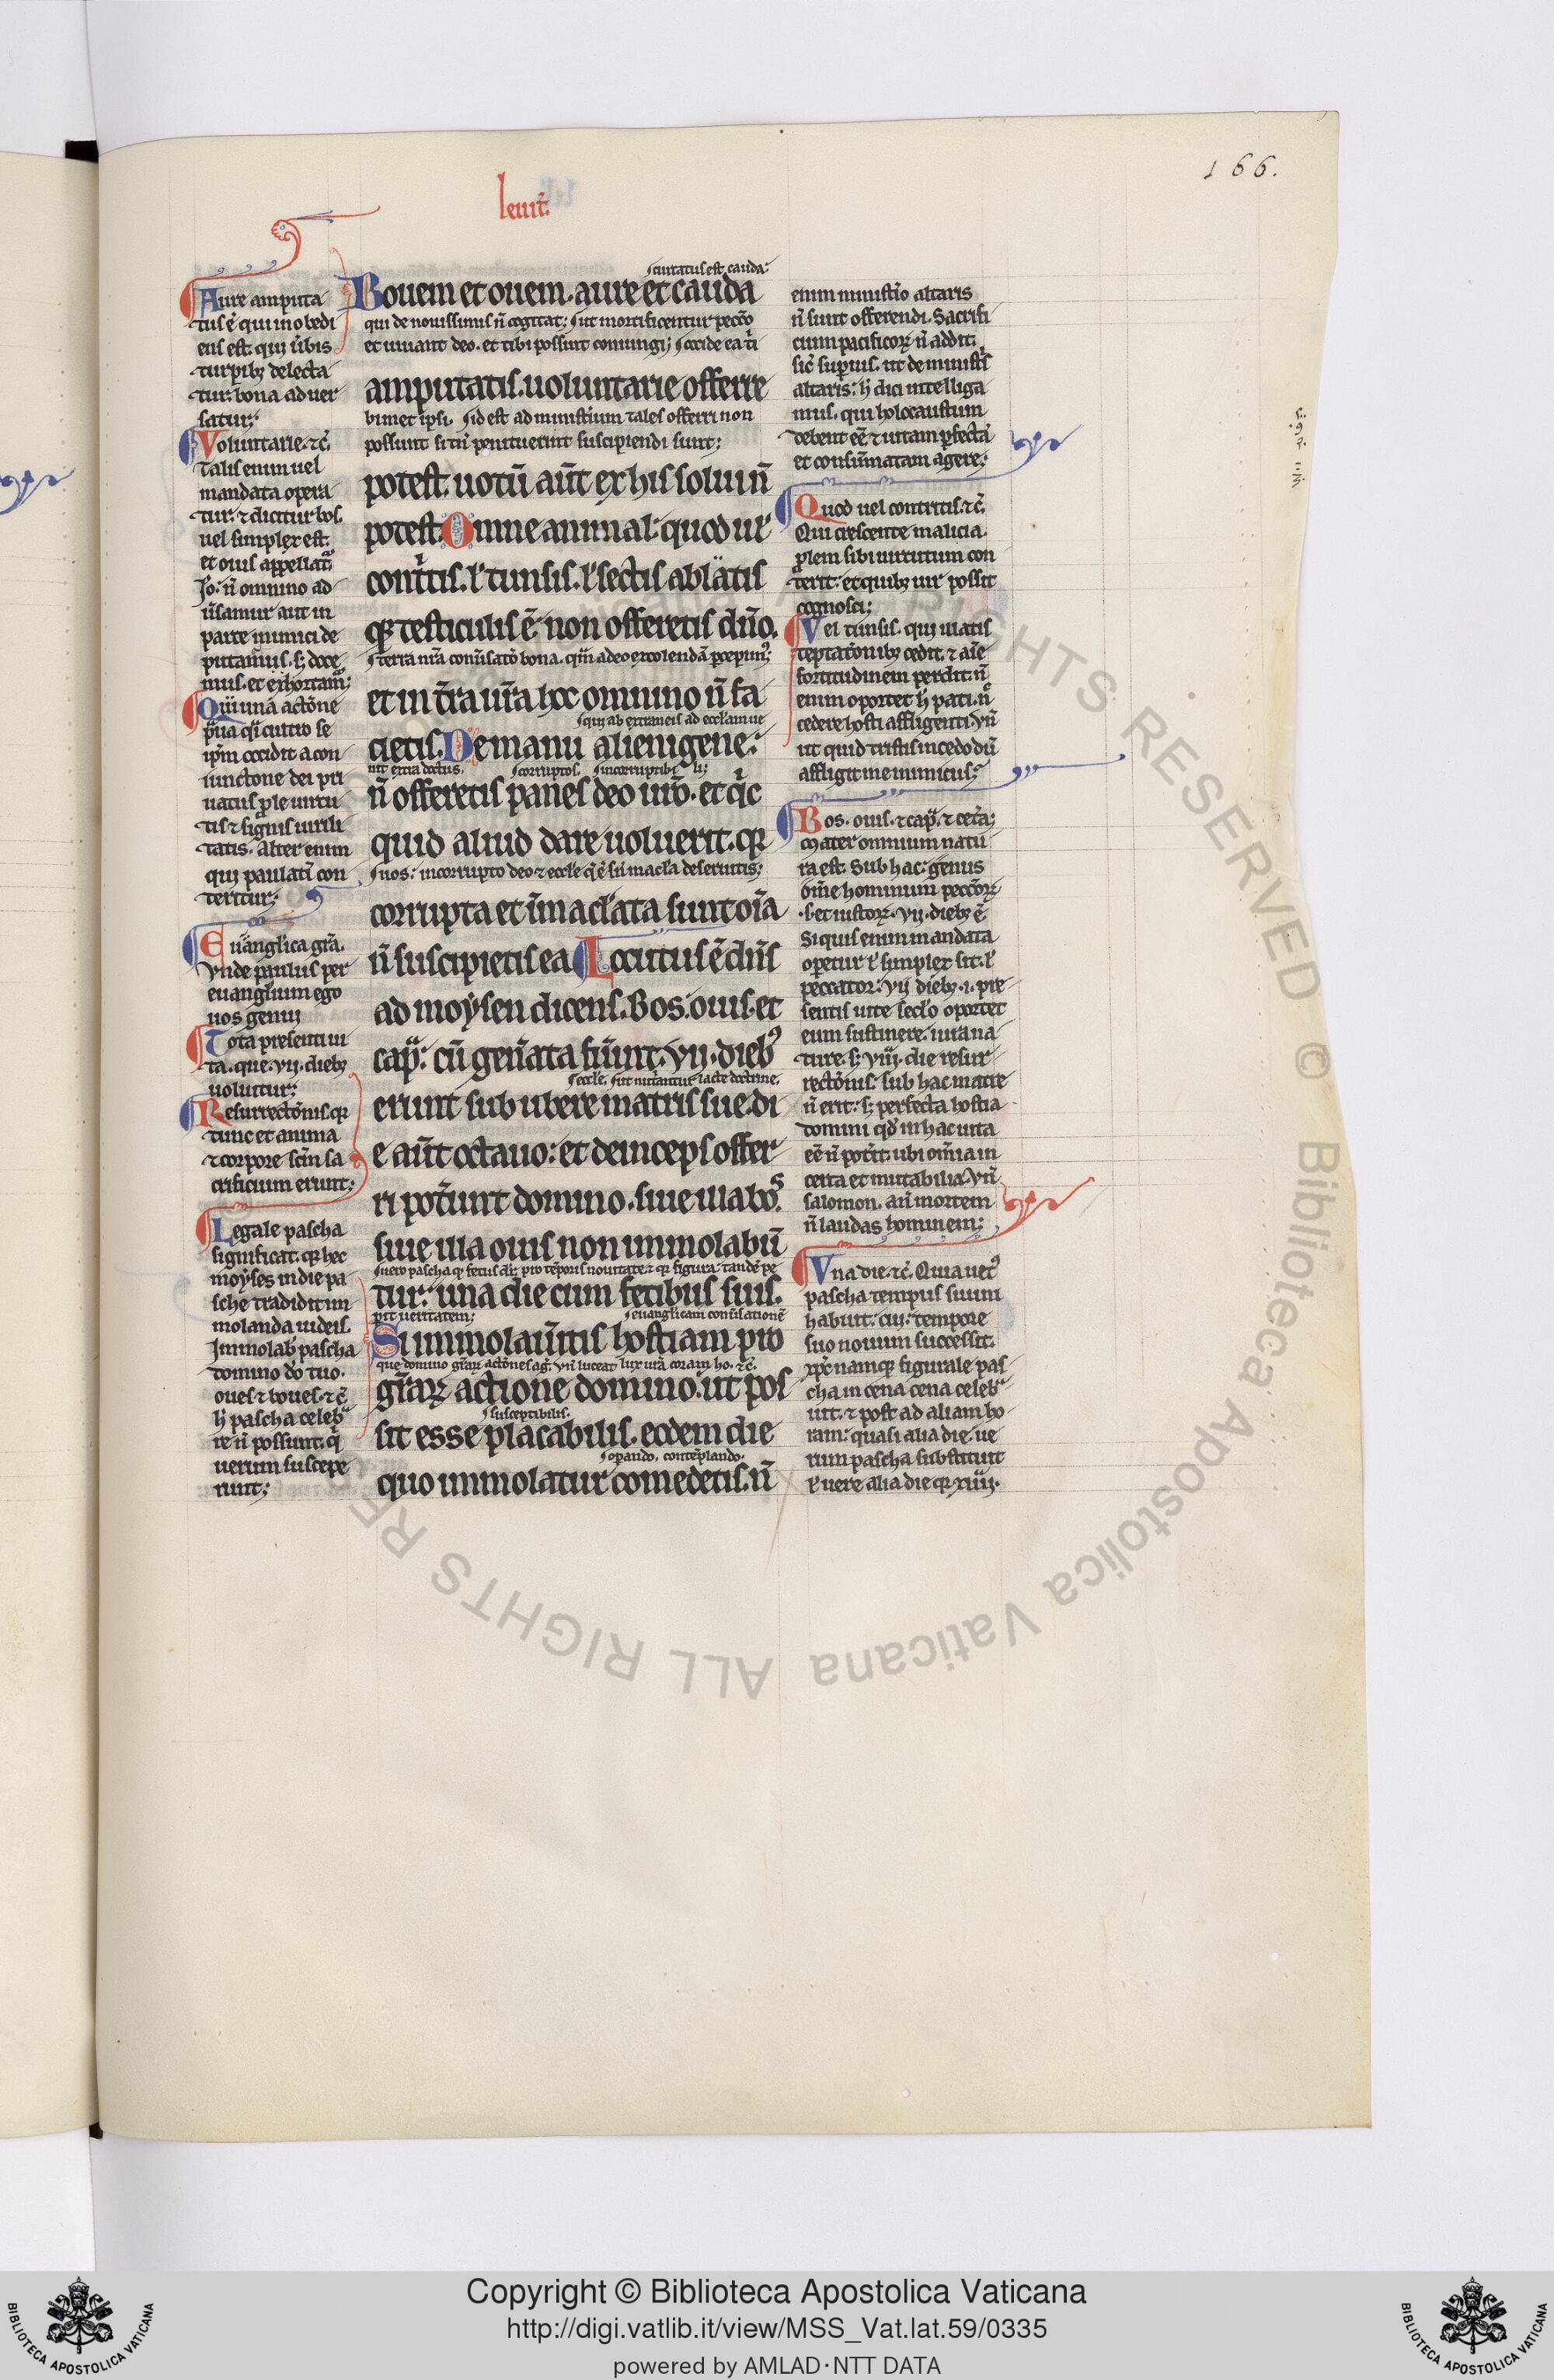 166.
leuit̃.
Aure amputa
tus ẽ qui inobedi
ens est. qui ũbis
turpibꝫ delecta
tur: bona aduer
satur;
Voluntarie. ⁊c̃.
Talis enim uel
mandata opera
tur. ⁊ dicitur bos.
uel simplex est.
et ouis appellat̃.
Jo: ñ omnino ad
ũsamur aut in
parte inimici de
putamus. sꝫ doce
mus. et exhortam̃;
Qui una actõne
p̃ua q̃i cutiro se
ip̃m occidit a con
iunctone dei pri
uatus ꝓle uirtu
tis ⁊ signis uirili
tatis. Alter enim
qui paulati con
teritur;
Euãnglica gr̃a.
vnde paulus per
euanglium ego
uos genui
Tota presenti ui
ta. que. vij. diebꝫ
uoluitur;
Resurrectõnis. qꝫ
tunc et anima
⁊ corpore sc̃m sa
crificium erunt;
Legale pascha
significat. qꝫ hec
moyses in die pa
sche tradidit im
molanda iudeis.
Immolab̃ pascha
domino dõ tuo.
oues ⁊ boues. ⁊c̃
h̃ pascha celeb̃
re ñ possunt. q̃
uerum suscepe
runt;
s̃curtatus est. cauda:
Bouem et ouem. aure et cauda
qui de nouissimis ñ cogitat: s̃ut mortificentur pecc̃o
et uiuant deo. et tibi possint coniungi; s̃occide ea t̃i
amputatis. uoluntarie offerre
bimet ipsi. s̃id est ad ministr̃ium tales offerri non
possunt si tñ penituerint suscipiendi sunt;
potest. uotũ aũt ex his solui ñ
potest. Omne animal: quod uł
contr̃itis. ł tunsis. ł sectis ablatis
qꝫ testiculis ẽ: non offeretis dño.
s̃terra nr̃a conũsatõ bona. qm̃ adeo excolendã p̃cepim̃;
et in tr̃a ur̃a hoc omnino ñ fa
s̃qui ab extraneis ad eccl̃am ue
cietis. De manu alienigene:
nit extra doctus. s̃corruptos. s̃incorruptibi li;
ñ offeretis panes deo uro. et qic
quid aliud dare uoluerit. qꝫ
s̃uos: incorrupto deo ⁊ eccl̃e q̃ ẽ sñ macl̃a deseruitis;
corrupta et ĩmacl̃ata sunt oĩa
ñ suscipietis ea Locutus ẽ dñs
ad moysen dicens. Bos. ouis. et
cap̃: cũ geñata fũint. vij. dieb9
s̃eccl̃e. s̃ut nutr̃iantur lacte doctrine.
erunt sub ubere matris sue. di
e aũt octauo: et deinceps offer
ri potẽunt domino. siue illa bos.
siue illa ouis non immolabũ
s̃uero pascha qꝫ fetus dr̃. pro tẽporis nouitate ⁊ qꝫ figura tandẽ pe
tur: una die cum fetibus suis.
p̃it ueritatem; s̃euanglicam conũsationẽ
Si immolauẽritis hostiam pro
que domino gr̃aꝝ actõnes agit. vñ luceat lux ur̃a coram ho. ⁊c̃.
gr̃aꝝ actione domino: ut pos
s̃susceptibilis.
sit esse placabilis. eodem die
s̃operando. contẽplando.
quo immolatur comedetis. ñ
enim ministr̃io altaris
ñ sunt offerendi. Sacrifi
cium pacificoꝝ ñ addit.
sic̃ superius. ut de ministr̃is
altaris: h̃ dici intelliga
mus. qui holocaustum
debent eẽ ⁊ uitam ꝑfectã
et consũmatam agere;
Quod uel contritis. ⁊c̃.
Qui crescente malicia.
ꝓlem sibi uirtutum con
terit. et quibꝫ uir possit
cognosci;
Vel tunsis. qui illatis
teptatõnibꝫ cedit. ⁊ aĩe
fortitudinem perdit. ñ
enim oportet h̃ pati. ñ
cedere hosti affligenti. vñ
ut quid tristis incedo dũ
affligit me inimicus;
Bos. ouis. ⁊ cap̃. ⁊ ceta;
Mater omnium natu
ra est. Sub hac: genus
õme hominum pecc̃oꝝ
.s. et iustoꝝ. vij. diebꝫ ẽ.
Si quis enim mandata
operetur ł simplex sit. ł
peccator: vij diebꝫ .i. pre
sentis uite secl̃o oportet
eum sustinere. iura na
ture. sꝫ viij. die resur
rectõnis: sub hac matre
ñ erit: sꝫ perfecta hostia
domini qđ in hac uita
eẽ ñ potẽit. ubi om̃ia in
certa et mutabilia. vñ
salomon. añ mortem
ñ laudas hominem;
Vna die. ⁊c̃. Quia uet9
pascha tempus suum
habuit: cui: tempore
suo nouum successit.
xp̃c namqꝫ figurale pas
cha in cena cena celeb̃
uit. ⁊ post ad aliam ho
ram: quasi alia die. ue
rum pascha substituit
ł uere alia die qꝫ xiiij.
Copyright © Biblioteca Apostolica Vaticana ALL RIGHTS RESERVED
BIBLIOTECA APOSTOLICA VATICANA
Copyright © Biblioteca Apostolica Vaticana
http://digi.vatlib.it/view/MSS_Vat.lat.59/0335
powered by AMLAD·NTT DATA
BIBLIOTECA APOSTOLICA VATICANA